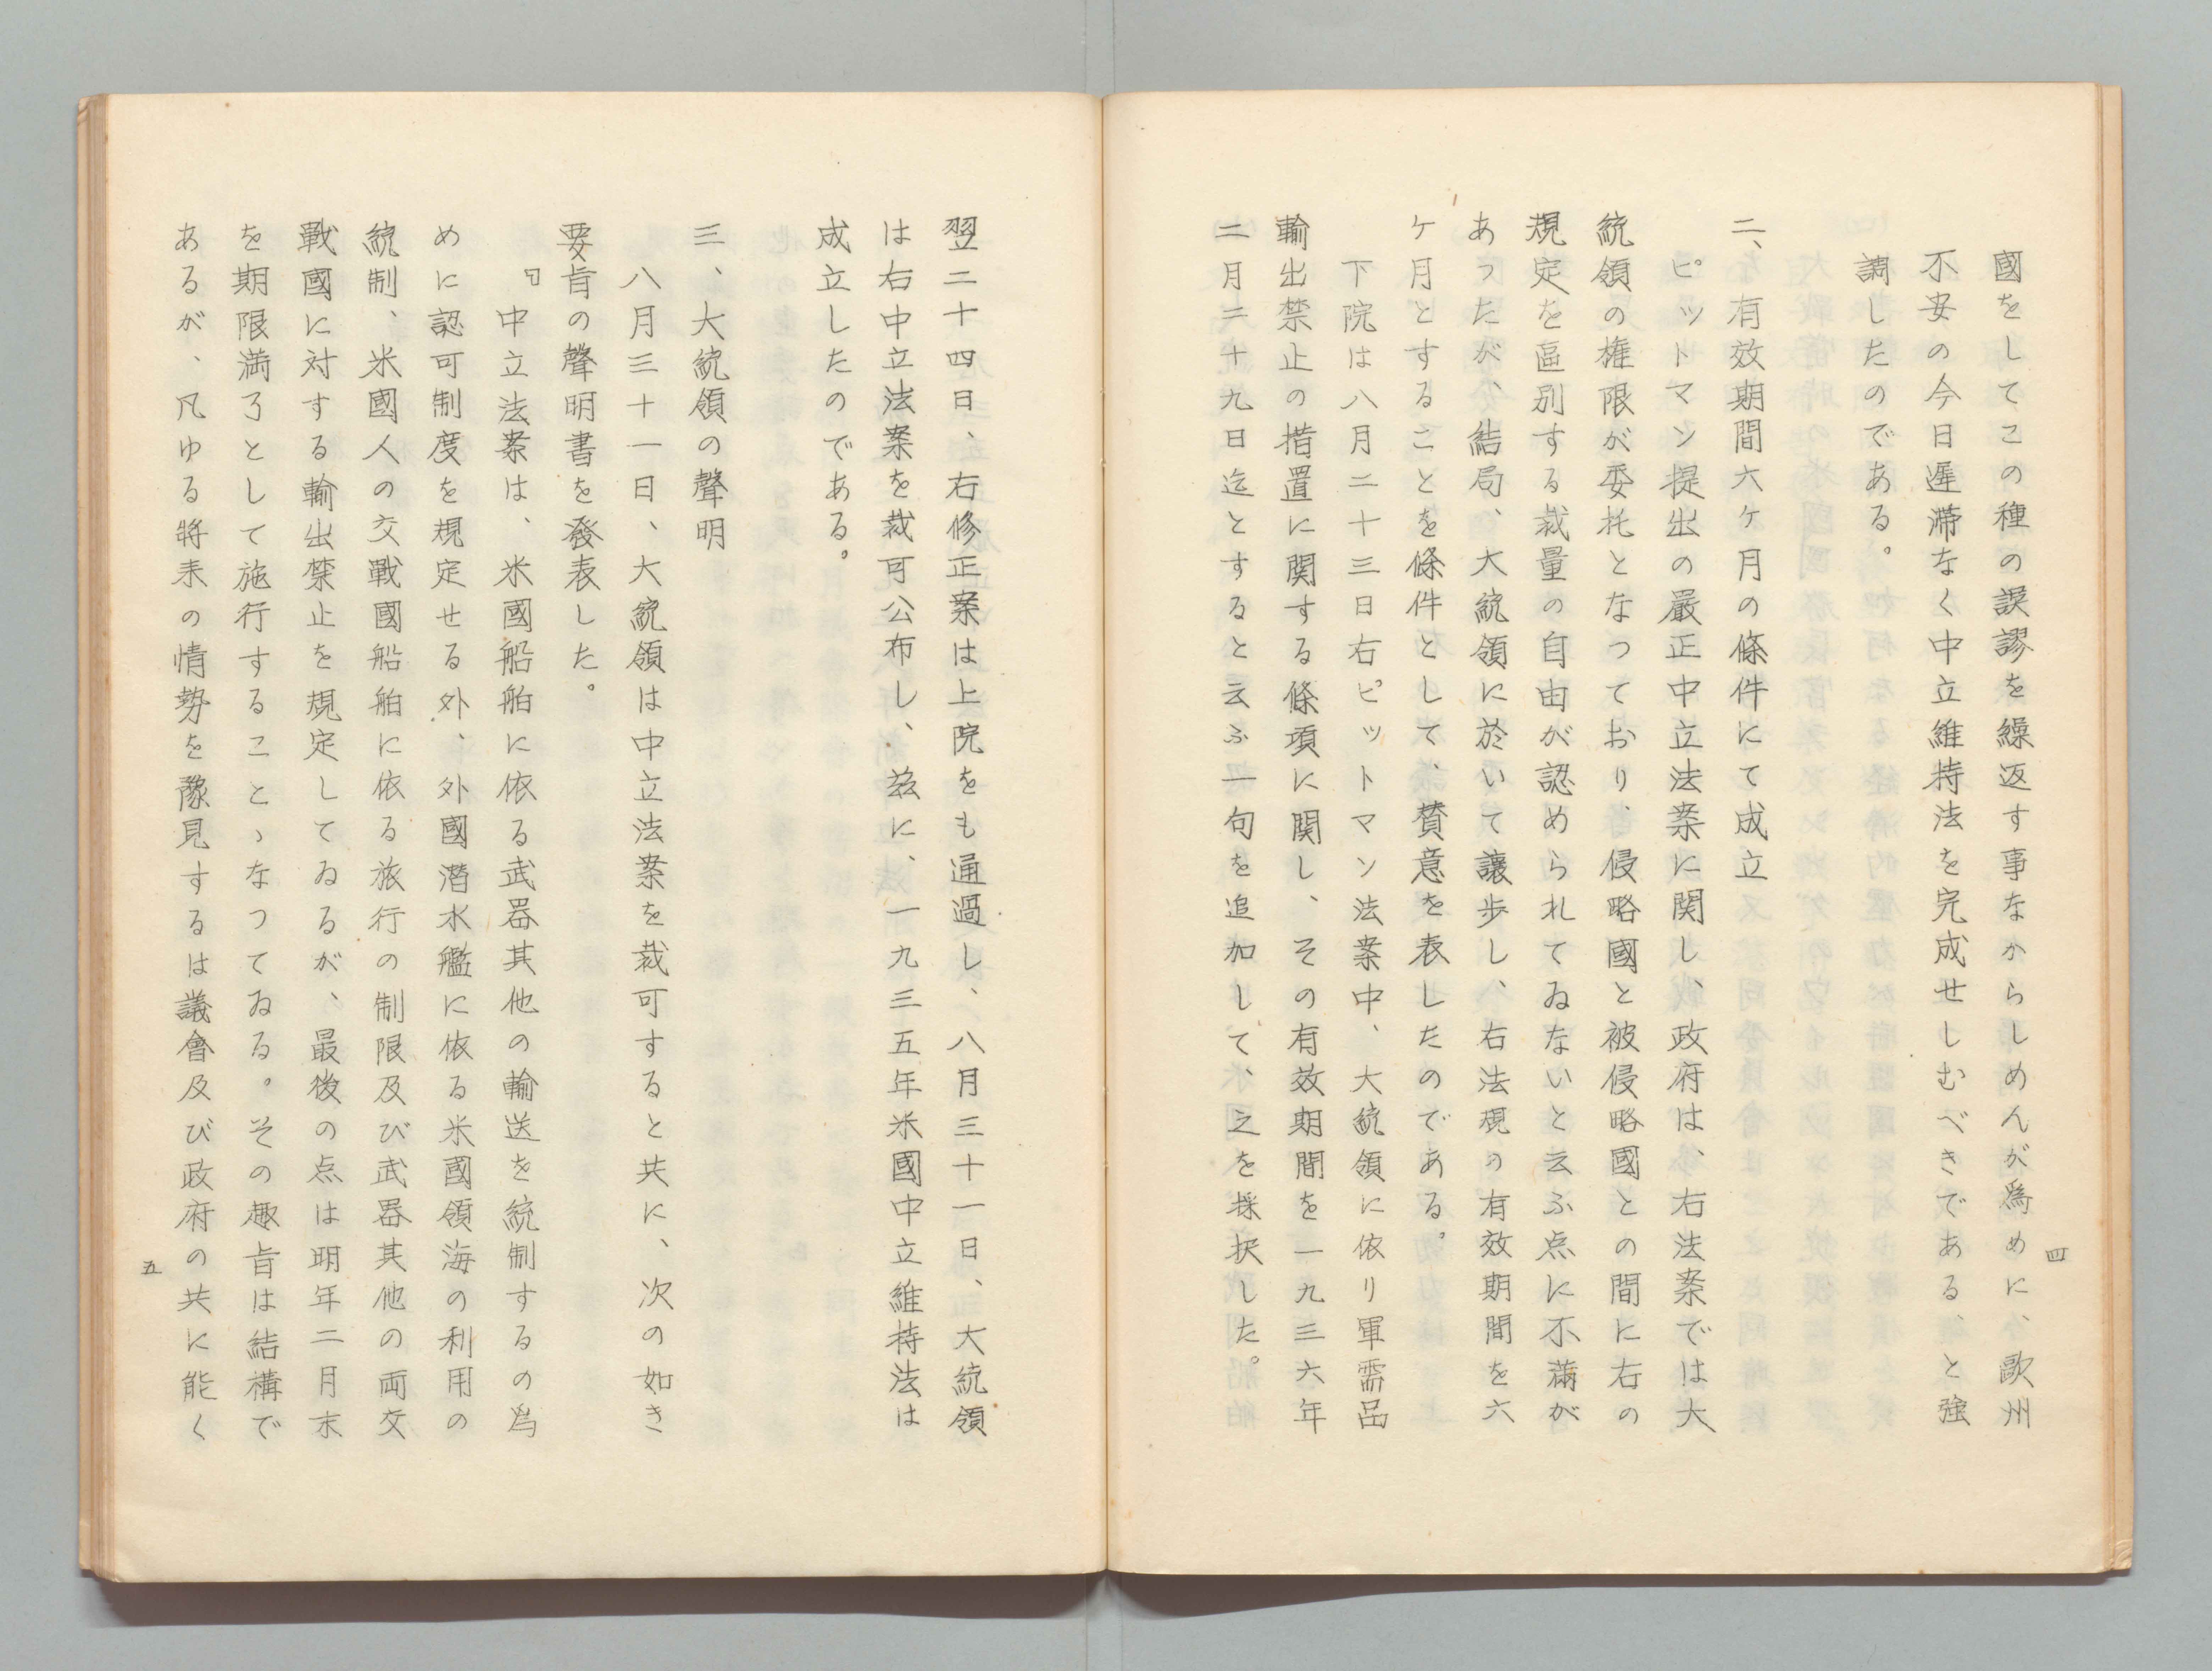 國をしてこの種の誤謬を繰返す事なからしめんが為めに、歐州
不安の今日遅滞なく中立維持法を完成せしむべきである、と強
調したのである。
二、有效期間六ケ月の條件にて成立
ピットマン提出の嚴正中立法案に関し、政府は、右法案では大
統領の権限が委托となつており、侵略國と被侵略國との間に右の
規定を區別する裁量の自由が認められてゐないと云ふ点に不満が
あつたが、結局、大統領に於いて讓歩し、右法規の有效期間を六
ケ月とすることを條件として、賛意を表したのである。
下院は八月二十三日右ピットマン法案中、大統領に依り軍需品
輸出禁止の措置に関する條項に関し、その有效期間を一九三六年
二月二十九日迄とすると云ふ一句を追加して、之を採択した。
四
翌二十四日、右修正案は上院をも通過し、八月三十一日、大統領
は右中立法案を裁可公布し、茲に、一九三五年米國中立維持法は
成立したのである。
三、大統領の聲明
八月三十一日、大統領は中立法案を裁可すると共に、次の如き
要旨の聲明書を發表した。
『中立法案は、米國船舶に依る武器其他の輸送を統制するの為
めに認可制度を規定せる外、外國潜水艦に依る米國領海の利用の
統制、米國人の交戰國船舶に依る旅行の制限及び武器其他の両交
戰國に対する輸出禁止を規定してゐるが、最後の点は明年二月末
を期限満了として施行することゝなつてゐる。その趣旨は結構で
あるが、凡ゆる将来の情勢を豫見するは議會及び政府の共に能く
五